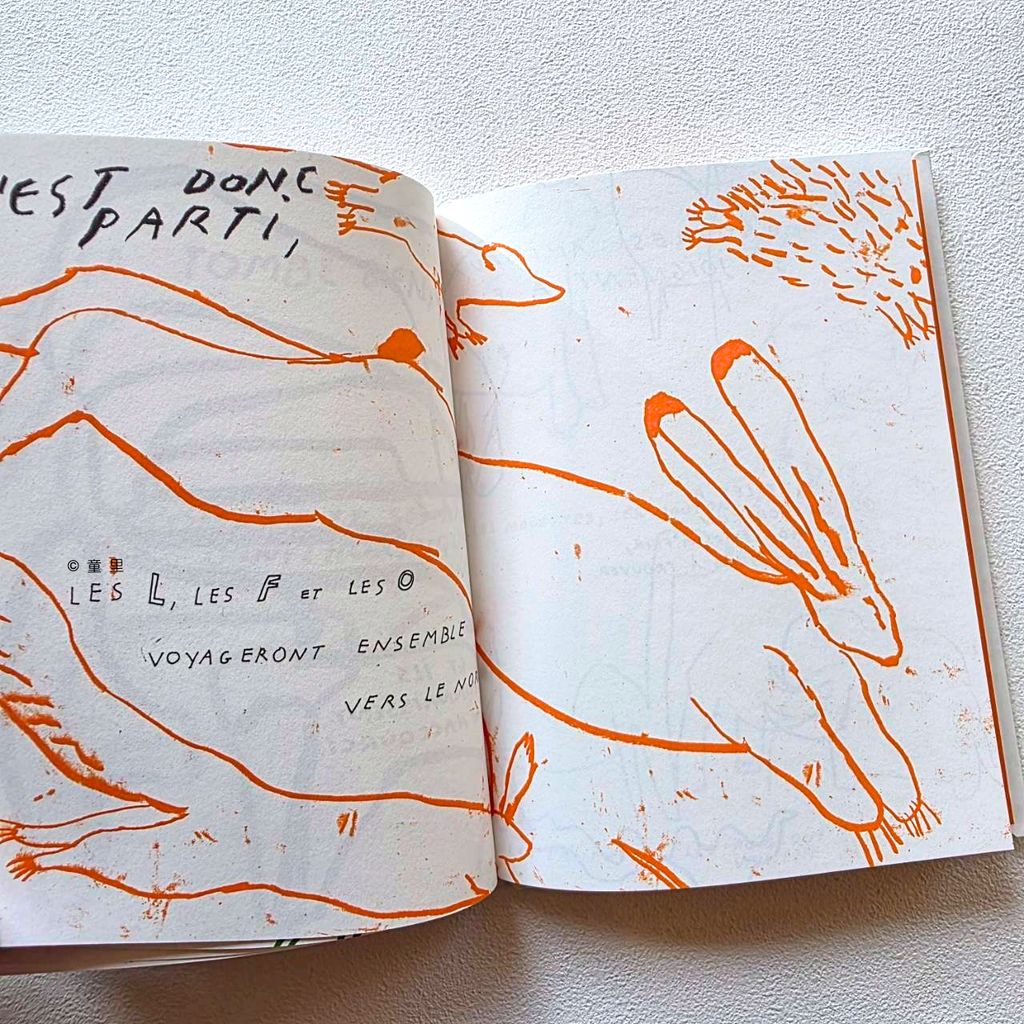 'EST DONC
PARTI,
© 童里
LES L, LES F ET LES O
VOYAGERONT ENSEMBLE
VERS LE NOR